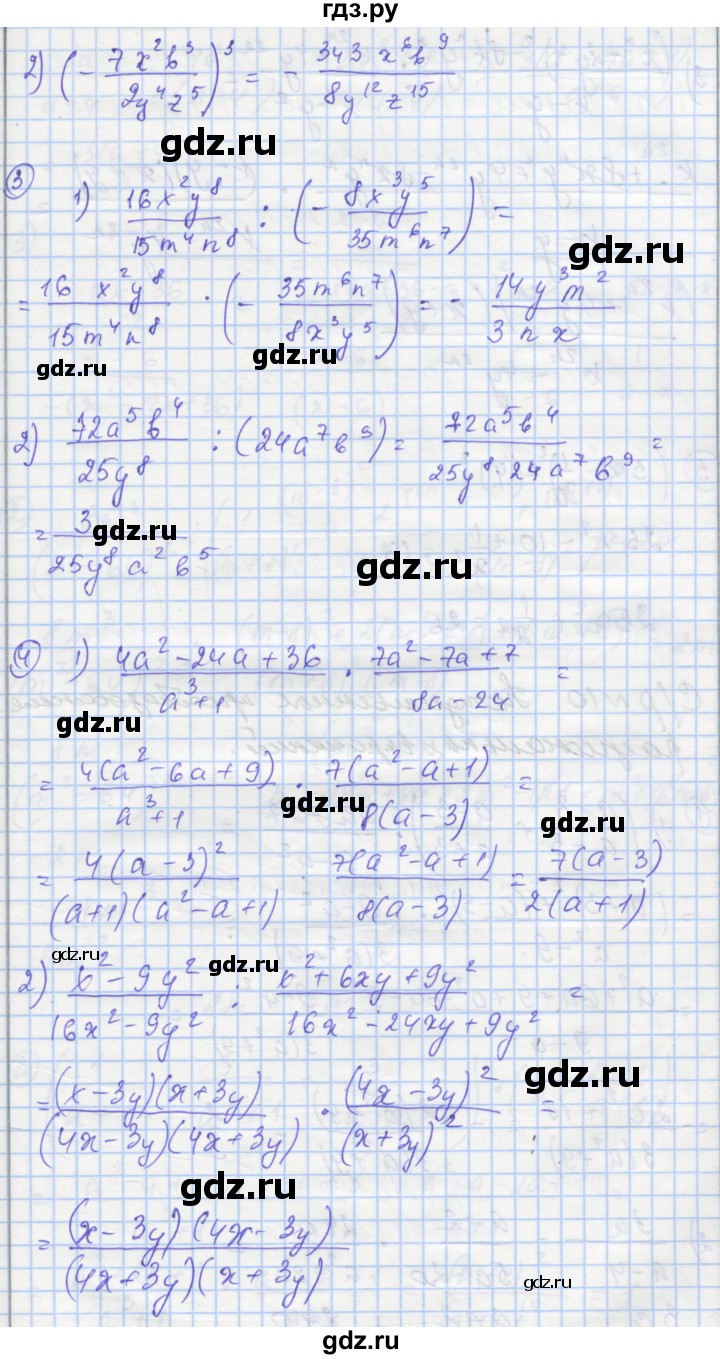 гдз.ру
2) (- 7x²b³ / 2y⁴z⁵)³ = - 343x⁶b⁹ / 8y¹²z¹⁵
gdz.ru
③ 1) 16x²y⁸ / 15m⁴n⁸ : (- 8x³y⁵ / 35m⁶n⁷) =
gdz.ru
= 16 x²y⁸ / 15m⁴n⁸ · (- 35m⁶n⁷ / 8x³y⁵) = - 14y³m² / 3nx
gdz.ru gdz.ru
2) 72a⁵b⁴ / 25y⁸ : (24a⁷b⁹) = 72a⁵b⁴ / 25y⁸·24a⁷b⁹ =
gdz.ru
= 3 / 25y⁸a²b⁵
gdz.ru
④ 1) 4a²-24a+36 / a³+1 · 7a²-7a+7 / 8a-24 =
gdz.ru
= 4(a²-6a+9) / a³+1 · 7(a²-a+1) / 8(a-3) =
gdz.ru gdz.ru
= 4(a-3)² / (a+1)(a²-a+1) · 7(a²-a+1) / 8(a-3) = 7(a-3) / 2(a+1)
gdz.ru gdz.ru
2) x²-9y² / 16x²-9y² : x²+6xy+9y² / 16x²-24xy+9y² =
gdz.ru
= (x-3y)(x+3y) / (4x-3y)(4x+3y) · (4x-3y)² / (x+3y)² =
gdz.ru
= (x-3y)(4x-3y) / (4x+3y)(x+3y)
gdz.ru
gdz.ru